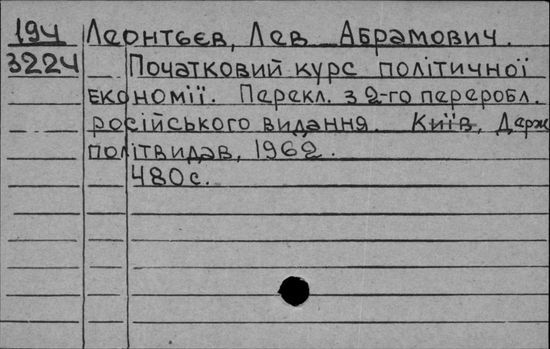 194 Леонтьєв, Лев Абрамович.
3224 Початковий курс політичної
економії. Перекл. з 2-го переробл.
російського видання. Київ, Держ
політвидав, 1962.
480с.